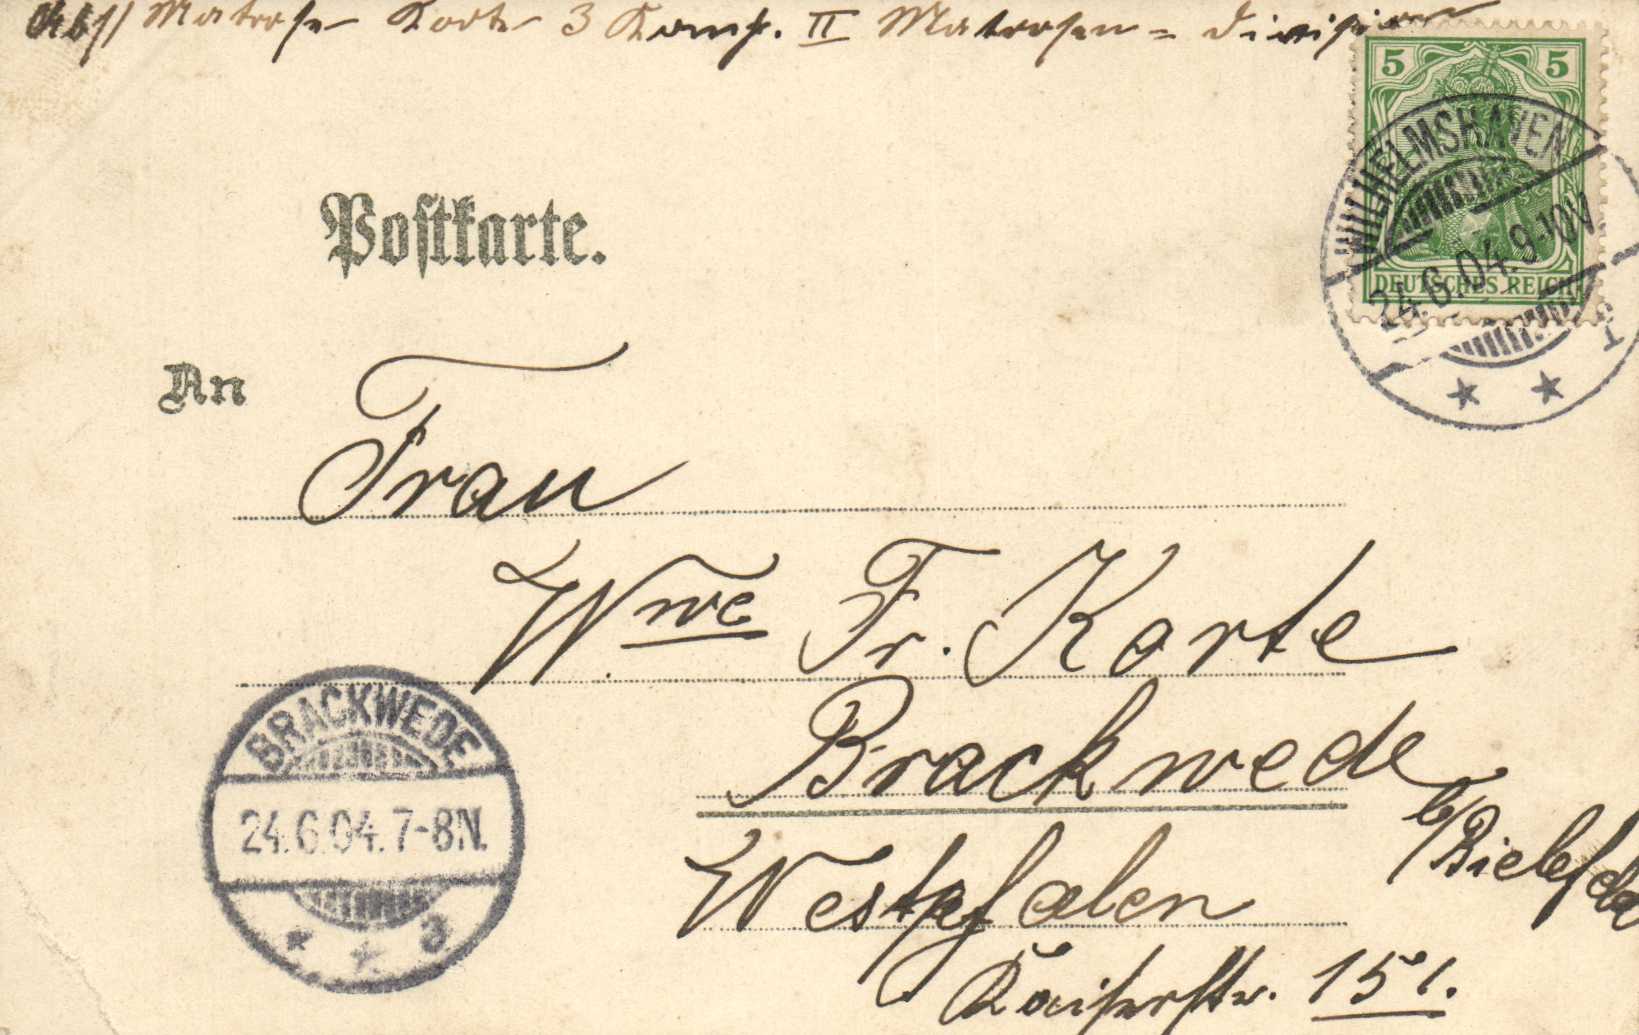 Abs/ Matrose Korte 3 Komp. II Matrosen = Division
5 5
WILHELMSHAVEN
24.6.04.9-10V
* 1 *
DEUTSCHES REICH
Postkarte.
An
Frau
Wwe Fr. Korte
Brackwede
b/Bielefeld
Westfalen
Kaiserstr. 151.
BRACKWEDE
24.6.04.7-8N.
* * 3